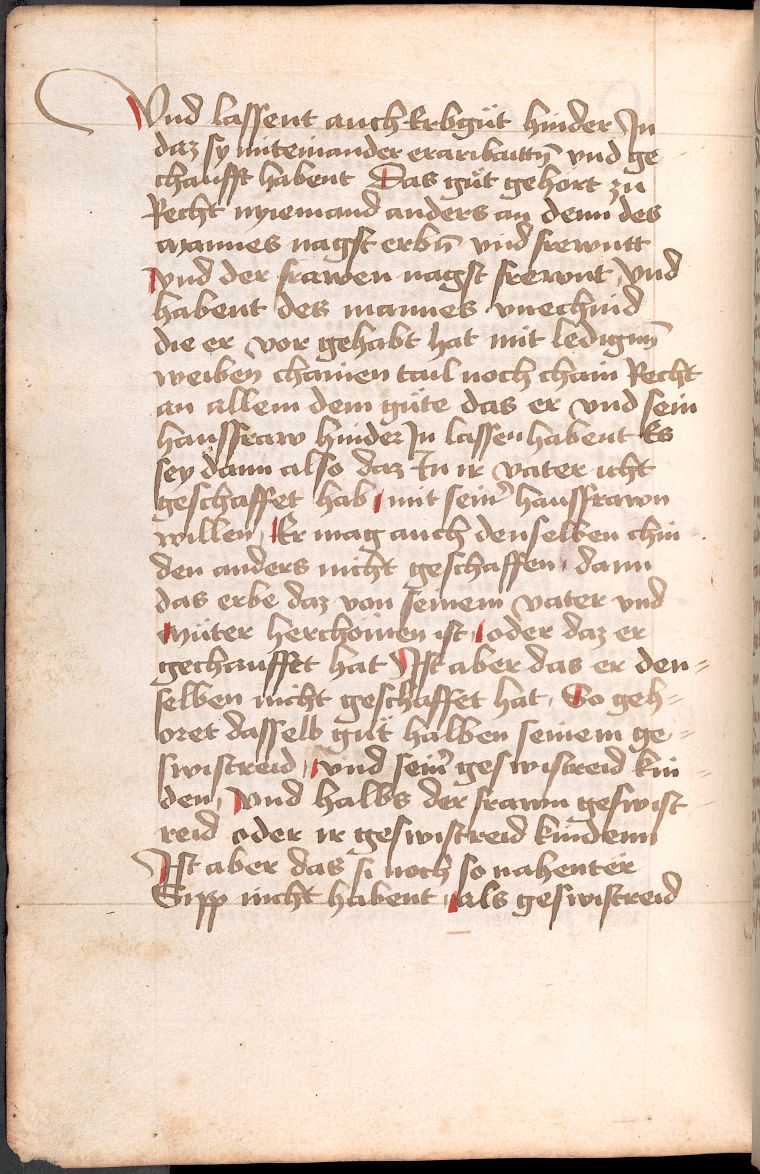 Vnd lassent auch Erbgüt hinder In
daz sy miteinander eraribaittñ vnd ge
chaufft habent Das güt gehort zu
Recht nyiemand anders an denn des
mannes nagst erbñ vnd frewntt
vnd der frawen nagst frewnt, vnd
habent des mannes vnechind
die er vor gehabt hat mit ledigñ
weiben chainen tail noch chain Recht
an allem dem güte das er vnd sein
hausfraw hinder In lassen habent Es
sey dann also daz In ir vater icht
geschaffet hab, mit sein̕ hausfrawn
willen, Er mag auch denselben chin-
den anders nicht geschaffen, dann
das erbe daz von seinem vater vnd
müter herchomen ist, oder daz er
gechaufft hat Ist aber das er den=
selben nicht geschaffet hat, So geh=
oret dasselb güt halben seinem ge=
swistreid, vnd sein̕ geswistreid kin=
den, vnd halbs der frawn geswist
reid oder ir geswistreid kindenn
Ist aber das si noch so nahenter
Sipp nicht habent, als geswistreid